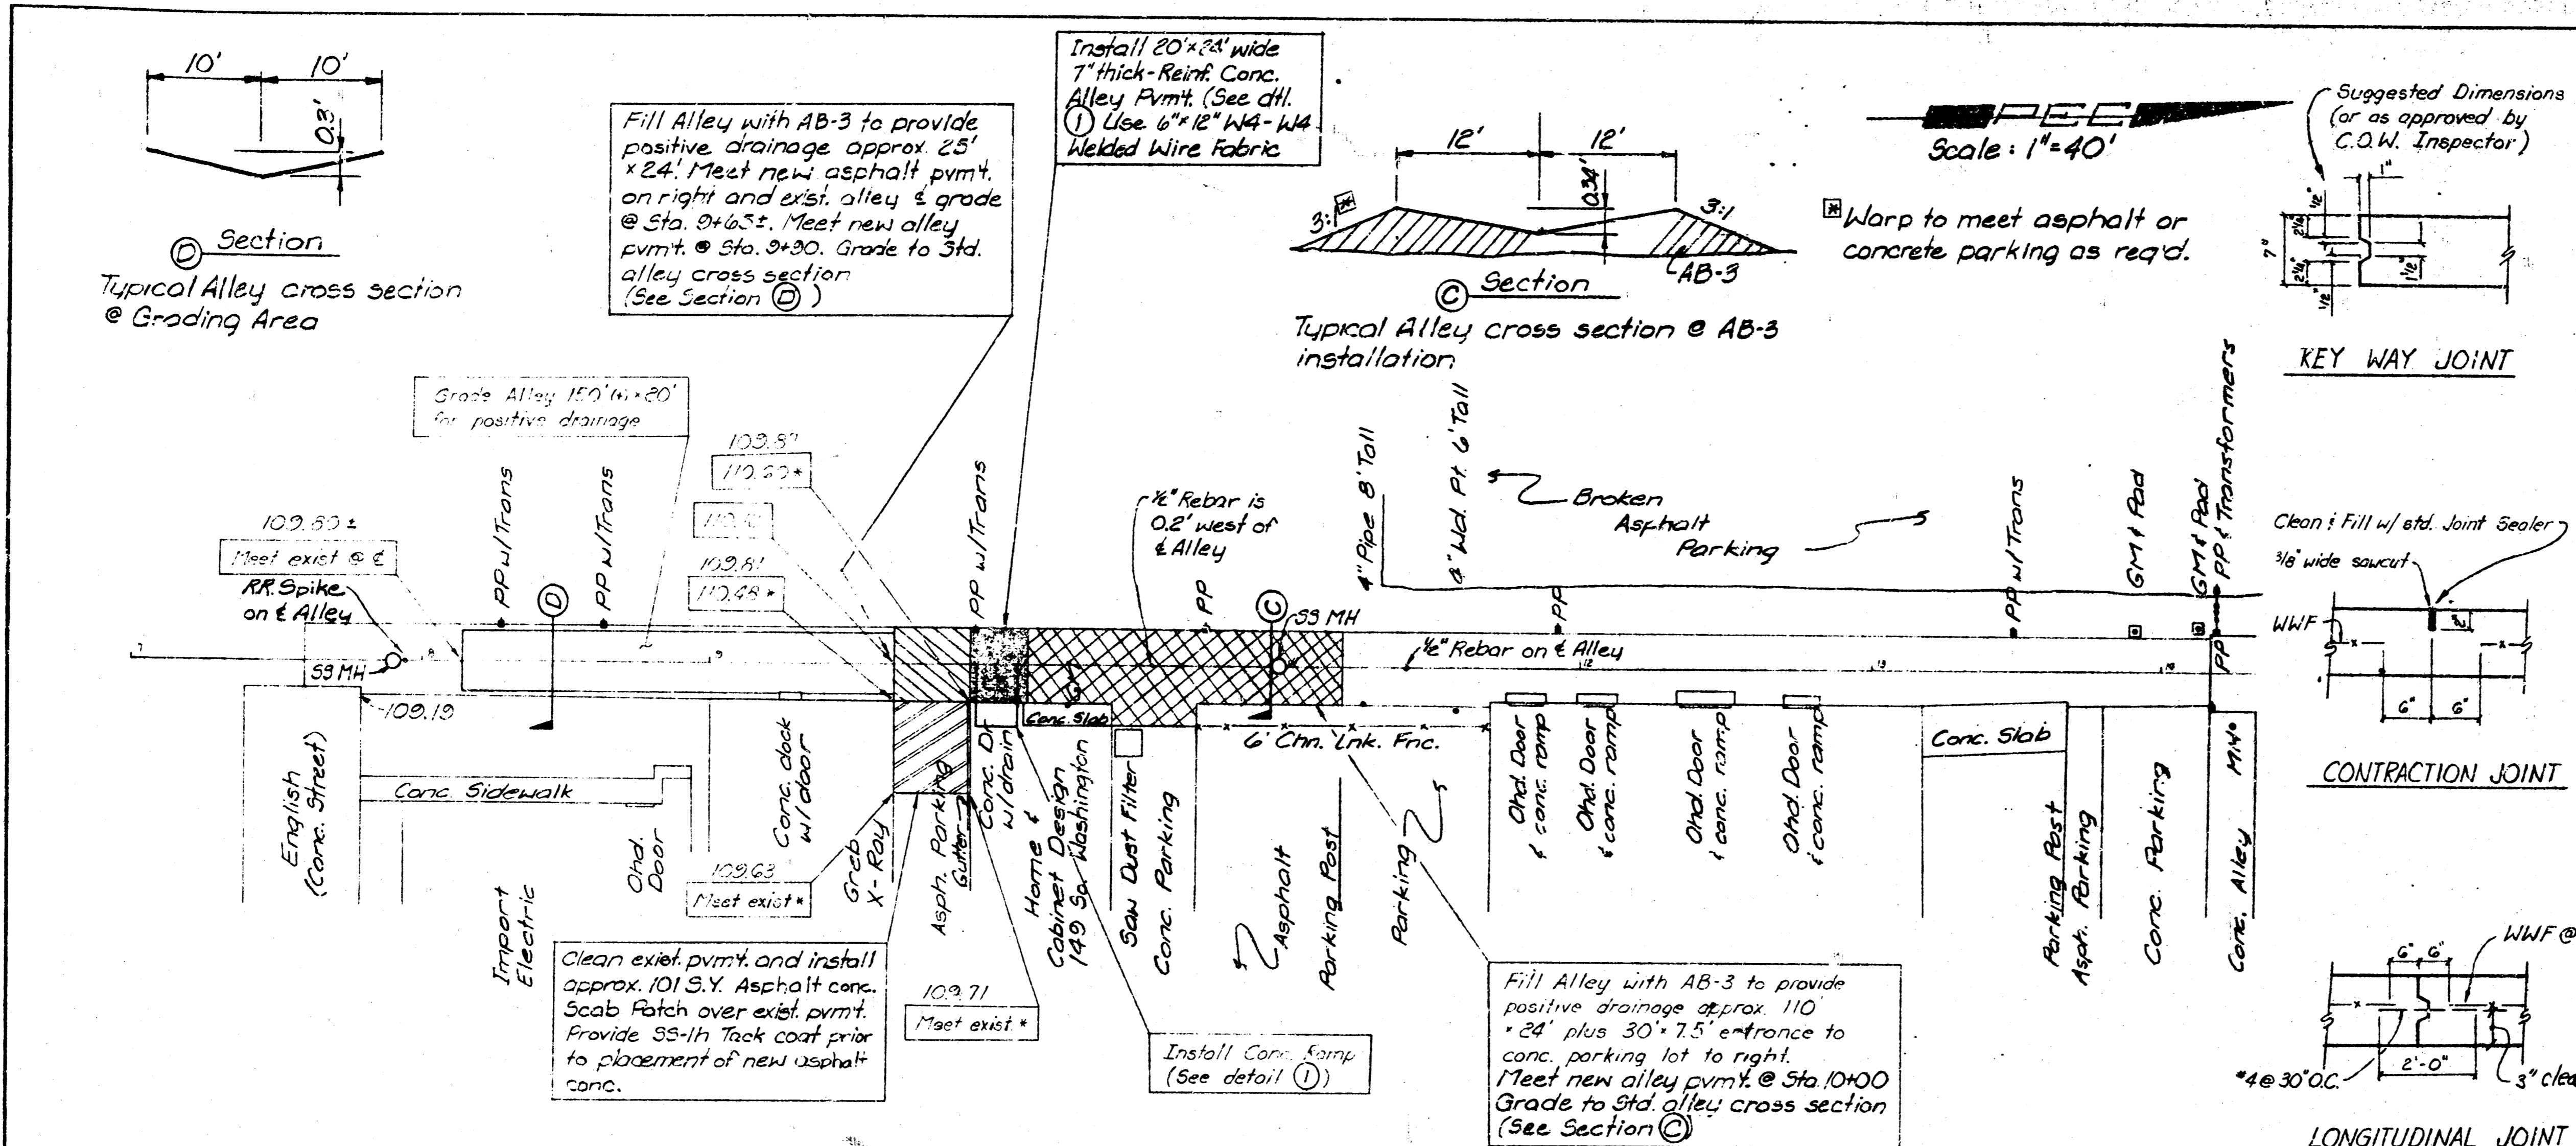 10' 10'
0.3'
D Section
Typical Alley cross section
@ Grading Area
Fill Alley with AB-3 to provide
positive drainage approx. 25'
x 24'. Meet new asphalt pvm't.
on right and exist. alley & grade
@ Sta. 9+65±. Meet new alley
pvm't. @ Sta. 9+90. Grade to Std.
alley cross section
(See Section D)
Install 20'x24' wide
7" thick-Reinf. Conc.
Alley Pvm't. (See dtl.
1 Use 6"x12" W4-W4
Welded Wire Fabric
12' 12'
0.34'
3:1 *
3:1
AB-3
C Section
Typical Alley cross section @ AB-3
installation
PEC
Scale: 1"=40'
* Warp to meet asphalt or
concrete parking as req'd.
Suggested Dimensions
(or as approved by
C.O.W. Inspector)
1"
1/2"
2 1/4"
7"
2 1/4"
1/2"
1 1/2"
KEY WAY JOINT
Grade Alley 150'(±)x20'
for positive drainage
109.87
109.81
110.48*
109.80±
Meet exist @ ℄
R.R. Spike
on ℄ Alley
PP w/Trans
PP w/Trans
D
PP w/Trans
1/2" Rebar is
0.2' west of
℄ Alley
PP
C
SS MH
4" Pipe 8' Tall
Wd. Pt. 6' Tall
Broken
Asphalt
Parking
PP
PP w/Trans
GM & Pad
GM & Pad
PP & Transformers
PP
7
8
9
12
13
14
SS MH
1/2" Rebar on ℄ Alley
109.19
English
(Conc. Street)
Conc. Sidewalk
Import
Electric
Ohd.
Door
Conc. dock
w/door
109.63
Meet exist*
Greb
X-Ray
Asph. Parking
Gutter
Conc. Dr.
w/drain
Conc. Slab
Home &
Cabinet Design
149 So. Washington
Saw Dust Filter
Conc. Parking
6' Chn. Lnk. Fnc.
Asphalt
Parking Post
Parking
Ohd. Door
& conc. ramp
Ohd. Door
& conc. ramp
Ohd. Door
& conc. ramp
Ohd. Door
& conc. ramp
Conc. Slab
Parking Post
Asph. Parking
Conc. Parking
Conc. Alley
Clean exist. pvm't. and install
approx. 101 S.Y. Asphalt conc.
Scab Patch over exist. pvm't.
Provide SS-1h Tack coat prior
to placement of new asphalt
conc.
109.71
Meet exist.*
Install Conc. Ramp
(See detail 1)
Fill Alley with AB-3 to provide
positive drainage approx. 110'
x 24' plus 30'x 7.5' entrance to
conc. parking lot to right.
Meet new alley pvm't. @ Sta. 10+00
Grade to Std. alley cross section
(See Section C)
Clean & Fill w/ std. Joint Sealer
3/8" wide sawcut
WWF
2"
6" 6"
CONTRACTION JOINT
6" 6"
WWF @
#4@30"O.C.
2'-0"
3" clea
LONGITUDINAL JOINT